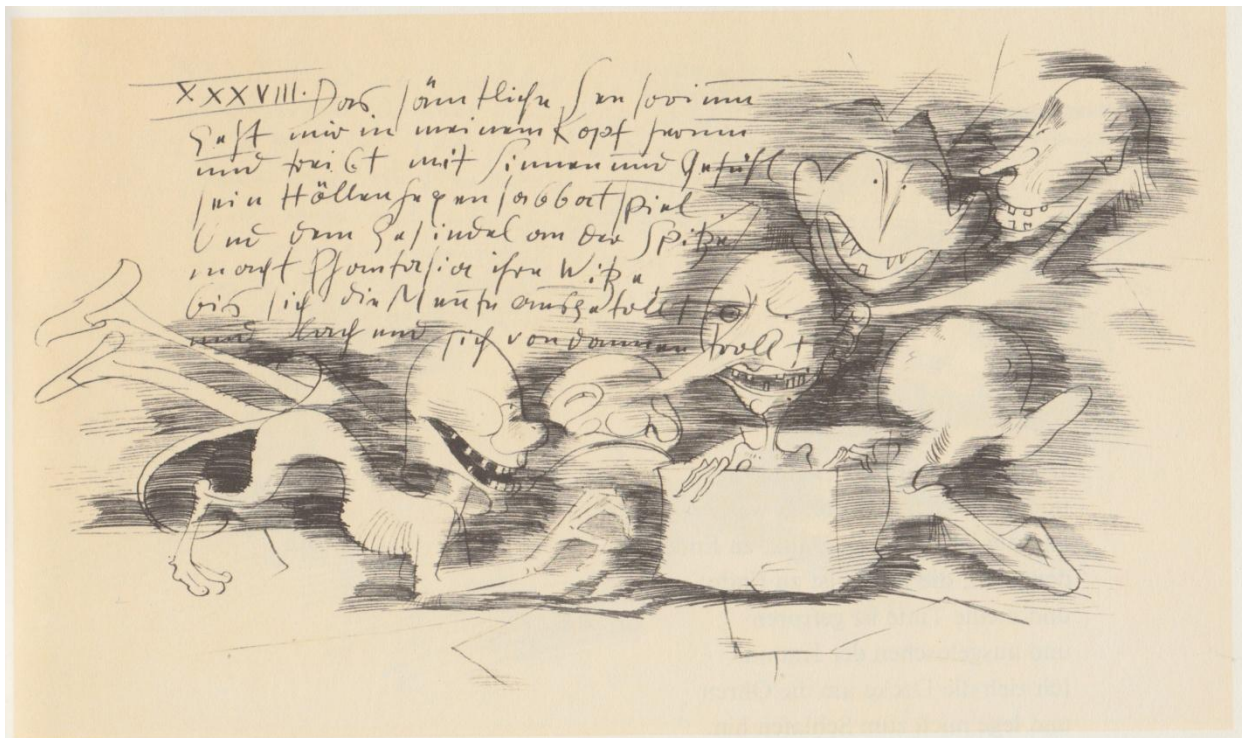 XXXVIII. Das sämtliche Sensorium
geht mir in meinem Kopf herum
und treibt mit Sinnen und Gefühl
sein Höllenhexensabbatspiel
Und dem Gesindel an der Spitze
macht Phantasia ihre Witze
bis sich die Meute ausgetollt
und lachend sich von dannen trollt